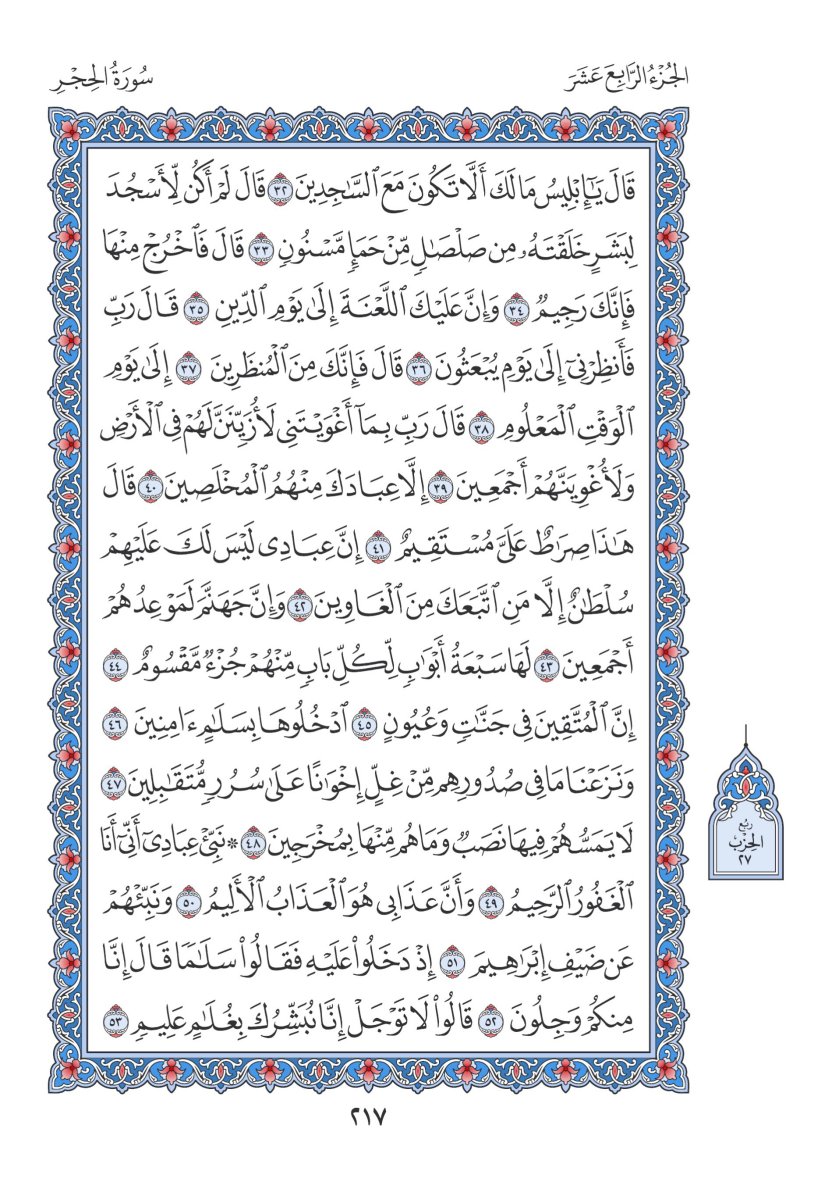 الجُزْءُ الرَّابِعَ عَشَرَ
سُورَةُ الحِجْرِ
قَالَ يَٰٓإِبْلِيسُ مَا لَكَ أَلَّا تَكُونَ مَعَ ٱلسَّٰجِدِينَ ٣٢ قَالَ لَمْ أَكُن لِّأَسْجُدَ
لِبَشَرٍ خَلَقْتَهُۥ مِن صَلْصَٰلٍ مِّنْ حَمَإٍ مَّسْنُونٍ ٣٣ قَالَ فَٱخْرُجْ مِنْهَا
فَإِنَّكَ رَجِيمٌ ٣٤ وَإِنَّ عَلَيْكَ ٱللَّعْنَةَ إِلَىٰ يَوْمِ ٱلدِّينِ ٣٥ قَالَ رَبِّ
فَأَنظِرْنِىٓ إِلَىٰ يَوْمِ يُبْعَثُونَ ٣٦ قَالَ فَإِنَّكَ مِنَ ٱلْمُنظَرِينَ ٣٧ إِلَىٰ يَوْمِ
ٱلْوَقْتِ ٱلْمَعْلُومِ ٣٨ قَالَ رَبِّ بِمَآ أَغْوَيْتَنِى لَأُزَيِّنَنَّ لَهُمْ فِى ٱلْأَرْضِ
وَلَأُغْوِيَنَّهُمْ أَجْمَعِينَ ٣٩ إِلَّا عِبَادَكَ مِنْهُمُ ٱلْمُخْلَصِينَ ٤٠ قَالَ
هَٰذَا صِرَٰطٌ عَلَىَّ مُسْتَقِيمٌ ٤١ إِنَّ عِبَادِى لَيْسَ لَكَ عَلَيْهِمْ
سُلْطَٰنٌ إِلَّا مَنِ ٱتَّبَعَكَ مِنَ ٱلْغَاوِينَ ٤٢ وَإِنَّ جَهَنَّمَ لَمَوْعِدُهُمْ
أَجْمَعِينَ ٤٣ لَهَا سَبْعَةُ أَبْوَٰبٍ لِّكُلِّ بَابٍ مِّنْهُمْ جُزْءٌ مَّقْسُومٌ ٤٤
إِنَّ ٱلْمُتَّقِينَ فِى جَنَّٰتٍ وَعُيُونٍ ٤٥ ٱدْخُلُوهَا بِسَلَٰمٍ ءَامِنِينَ ٤٦
وَنَزَعْنَا مَا فِى صُدُورِهِم مِّنْ غِلٍّ إِخْوَٰنًا عَلَىٰ سُرُرٍ مُّتَقَٰبِلِينَ ٤٧
لَا يَمَسُّهُمْ فِيهَا نَصَبٌ وَمَا هُم مِّنْهَا بِمُخْرَجِينَ ٤٨ ۞ نَبِّئْ عِبَادِىٓ أَنِّىٓ أَنَا
ٱلْغَفُورُ ٱلرَّحِيمُ ٤٩ وَأَنَّ عَذَابِى هُوَ ٱلْعَذَابُ ٱلْأَلِيمُ ٥٠ وَنَبِّئْهُمْ
عَن ضَيْفِ إِبْرَٰهِيمَ ٥١ إِذْ دَخَلُوا۟ عَلَيْهِ فَقَالُوا۟ سَلَٰمًا قَالَ إِنَّا
مِنكُمْ وَجِلُونَ ٥٢ قَالُوا۟ لَا تَوْجَلْ إِنَّا نُبَشِّرُكَ بِغُلَٰمٍ عَلِيمٍ ٥٣
رُبُع
الحِزْبِ
٢٧
٢١٧